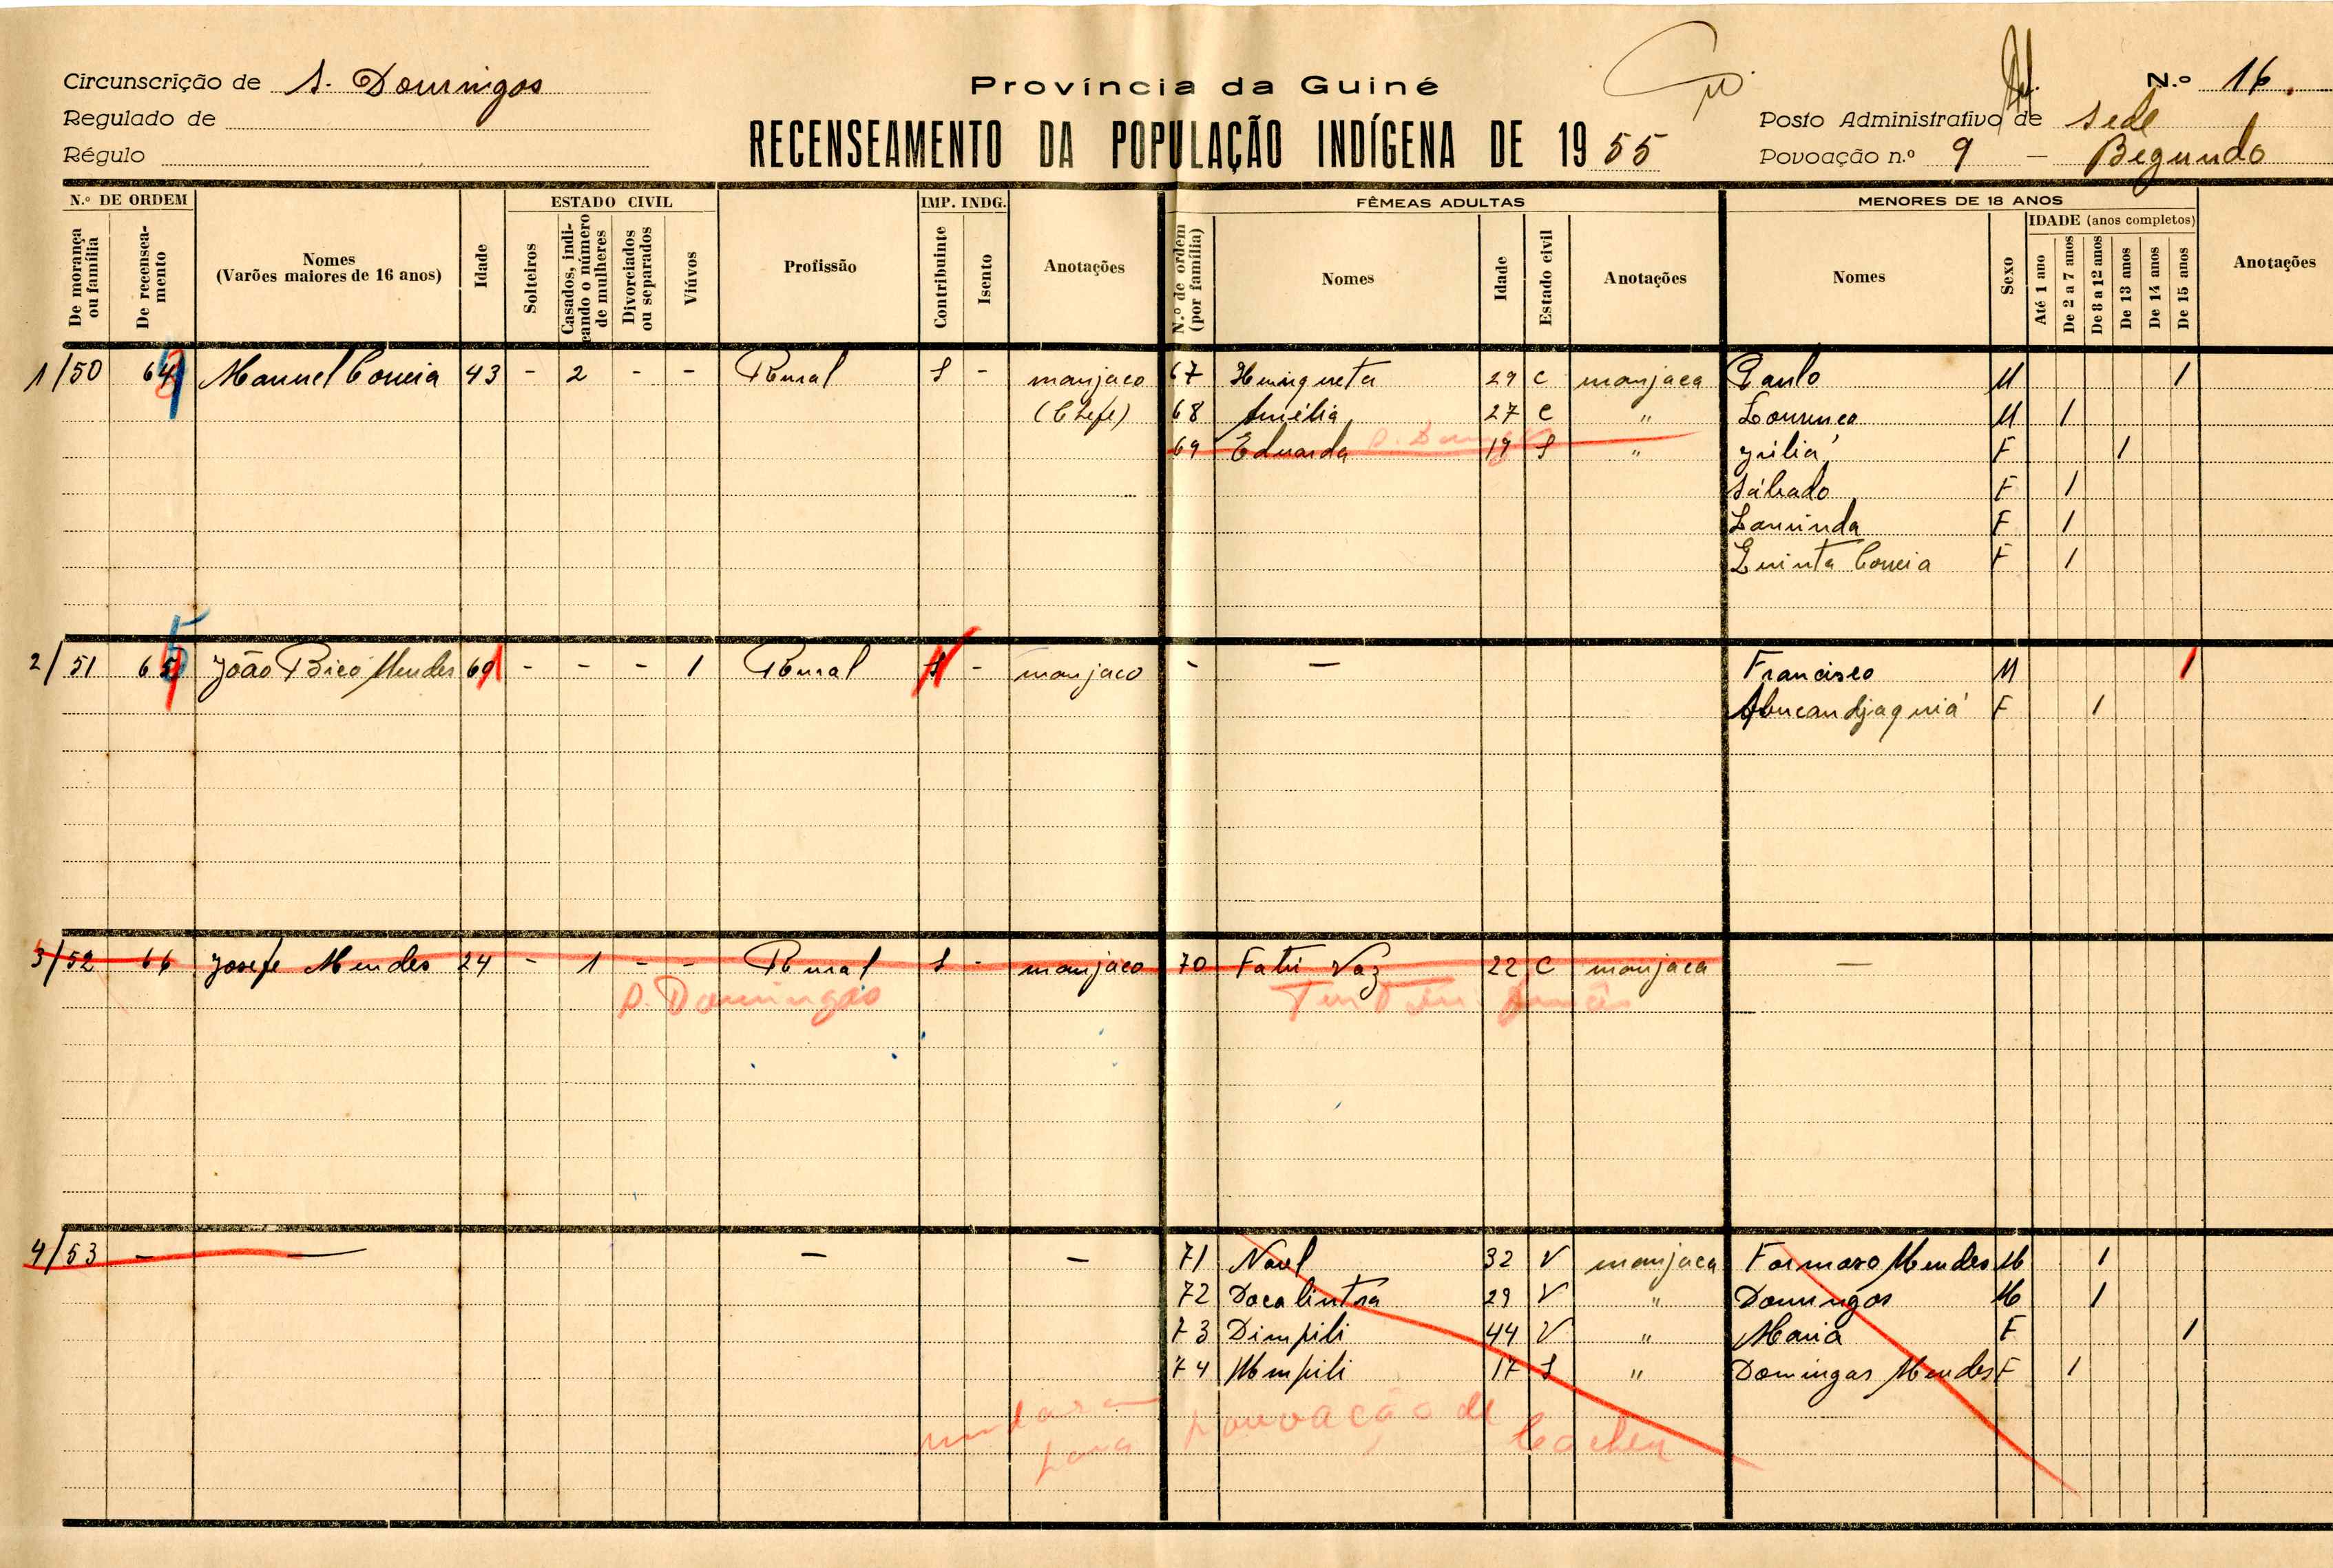 Circunscrição de S. Domingos
Regulado de
Régulo
Província da Guiné
RECENSEAMENTO DA POPULAÇÃO INDÍGENA DE 1955
N.º 16.
Posto Administrativo de Sede
Povoação n.º 9 — Begundo
N.º DE ORDEM
De morança ou família
De recenseamento
Nomes
(Varões maiores de 16 anos)
Idade
ESTADO CIVIL
Solteiros
Casados, indicando o número de mulheres
Divorciados ou separados
Viúvos
Profissão
IMP. INDG.
Contribuinte
Isento
Anotações
FÊMEAS ADULTAS
N.º de ordem (por família)
Nomes
Idade
Estado civil
Anotações
MENORES DE 18 ANOS
Nomes
Sexo
IDADE (anos completos)
Até 1 ano
De 2 a 7 anos
De 8 a 12 anos
De 13 anos
De 14 anos
De 15 anos
Anotações
1/50 64 Manuel Correia 43 - 2 - - Rural S - manjaco 67 Henriqueta 29 C manjaca Paulo M 1
(Chefe) 68 Amélia 27 C " Lourenço M 1
69 Eduarda 19 S " Júlia F 1
Sábado F 1
Laurinda F 1
Quinta Correia F 1
2/51 65 João Bicó Mendes 60 - - - 1 Rural S - manjaco - — Francisco M 1
F 1
3/52 66 Josefe Mendes 24 - 1 - - Rural S - manjaco 70 Fatú Vaz 22 C manjaca —
S. Domingos
4/53 — — — — 71 Naul 32 V manjaca Formoso Mendes M 1
72 29 V " Domingos M 1
73 Dimpili 44 V " Maria F 1
74 Mempili 17 S " Domingas Mendes F 1
mudaram para povoação de Cacheu